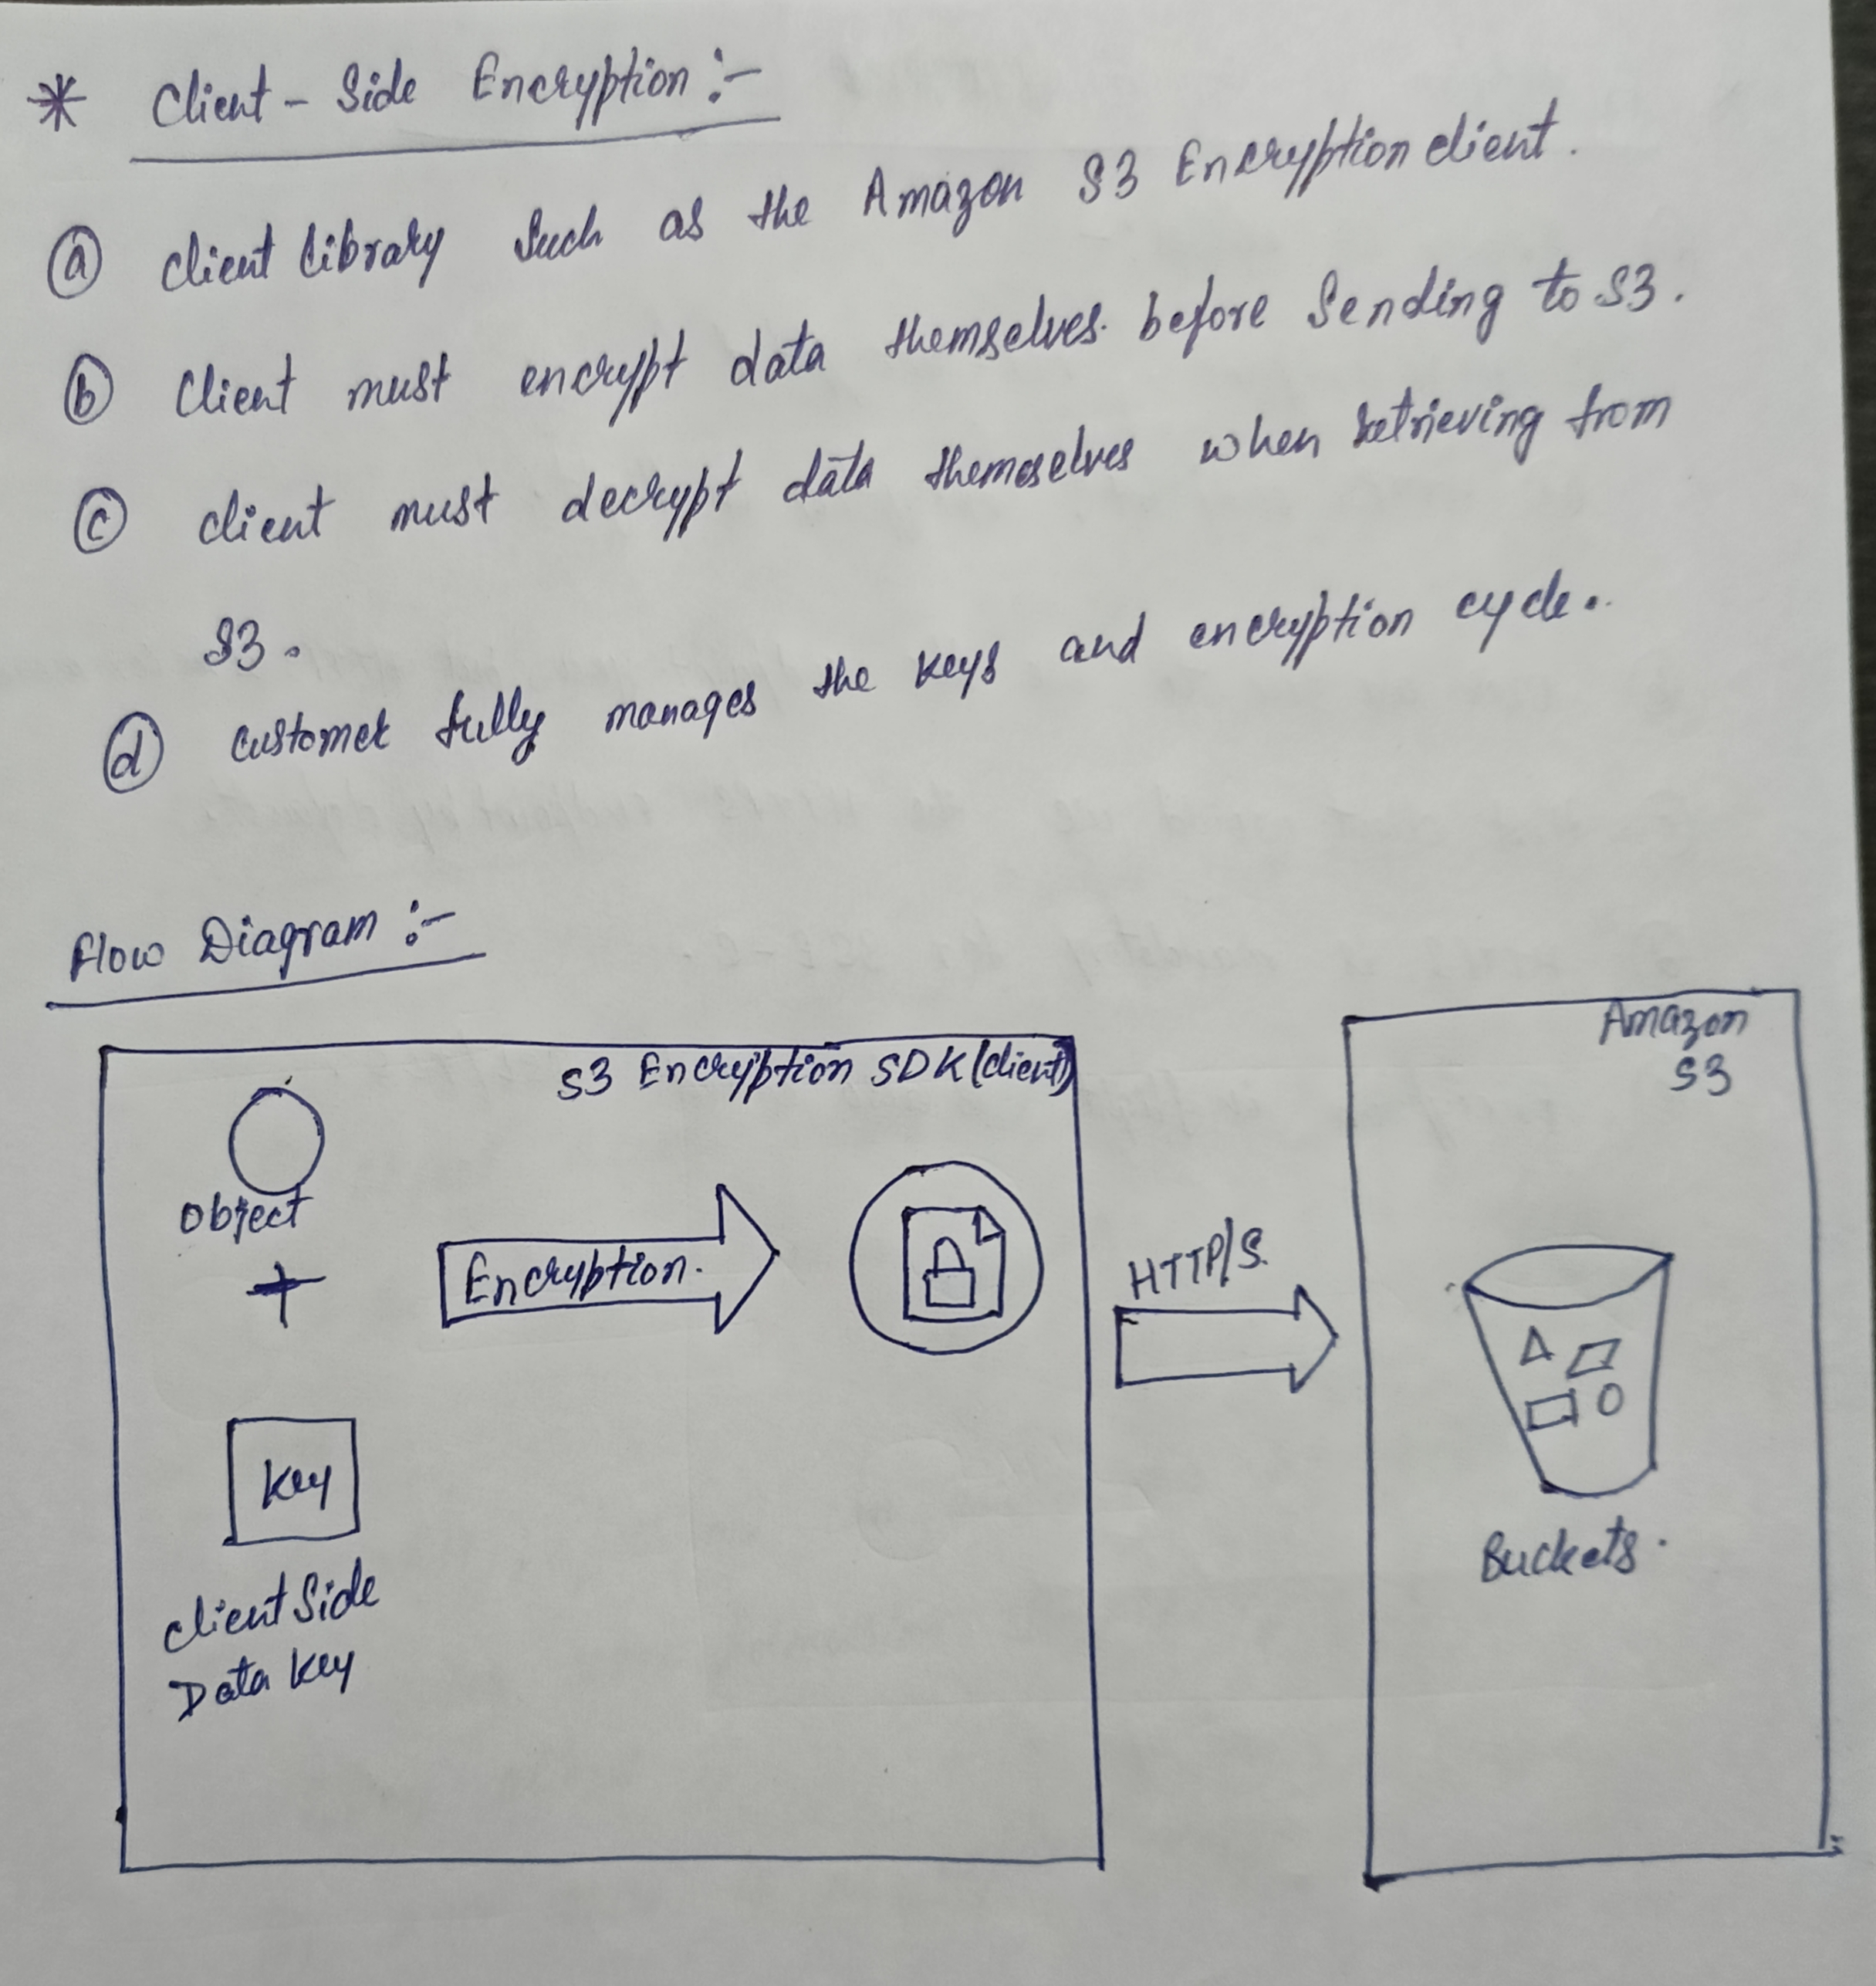 * Client - Side Encryption :-
ⓐ client library such as the Amazon S3 Encryption client.
ⓑ Client must encrypt data themselves. before Sending to S3.
ⓒ client must decrypt data themeselves when retrieving from
S3.
ⓓ customer fully manages the keys and encryption cycle.
Flow Diagram :-
Amazon
S3
S3 Encryption SDK (client)
Object
+
Encryption.
HTTP/S.
Key
Client Side
Data Key
Buckets.